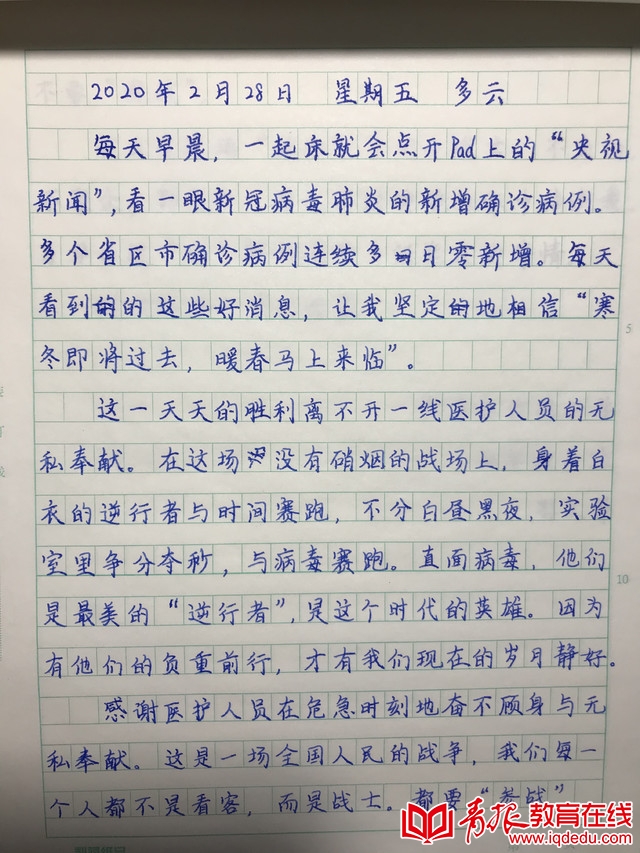 2020年2月28日 星期五 多云
每天早晨，一起床就会点开Pad上的“央视
新闻”，看一眼新冠病毒肺炎的新增确诊病例。
多个省区市确诊病例连续多日零新增。每天
看到的这些好消息，让我坚定地相信“寒
冬即将过去，暖春马上来临”。
这一天天的胜利离不开一线医护人员的无
私奉献。在这场没有硝烟的战场上，身着白
衣的逆行者与时间赛跑，不分白昼黑夜，实验
室里争分夺秒，与病毒赛跑。直面病毒，他们
是最美的“逆行者”，是这个时代的英雄。因为
有他们的负重前行，才有我们现在的岁月静好。
感谢医护人员在危急时刻地奋不顾身与无
私奉献。这是一场全国人民的战争，我们每一
个人都不是看客，而是战士。都要“参战”
5
10
青报教育在线
www.iqdedu.com